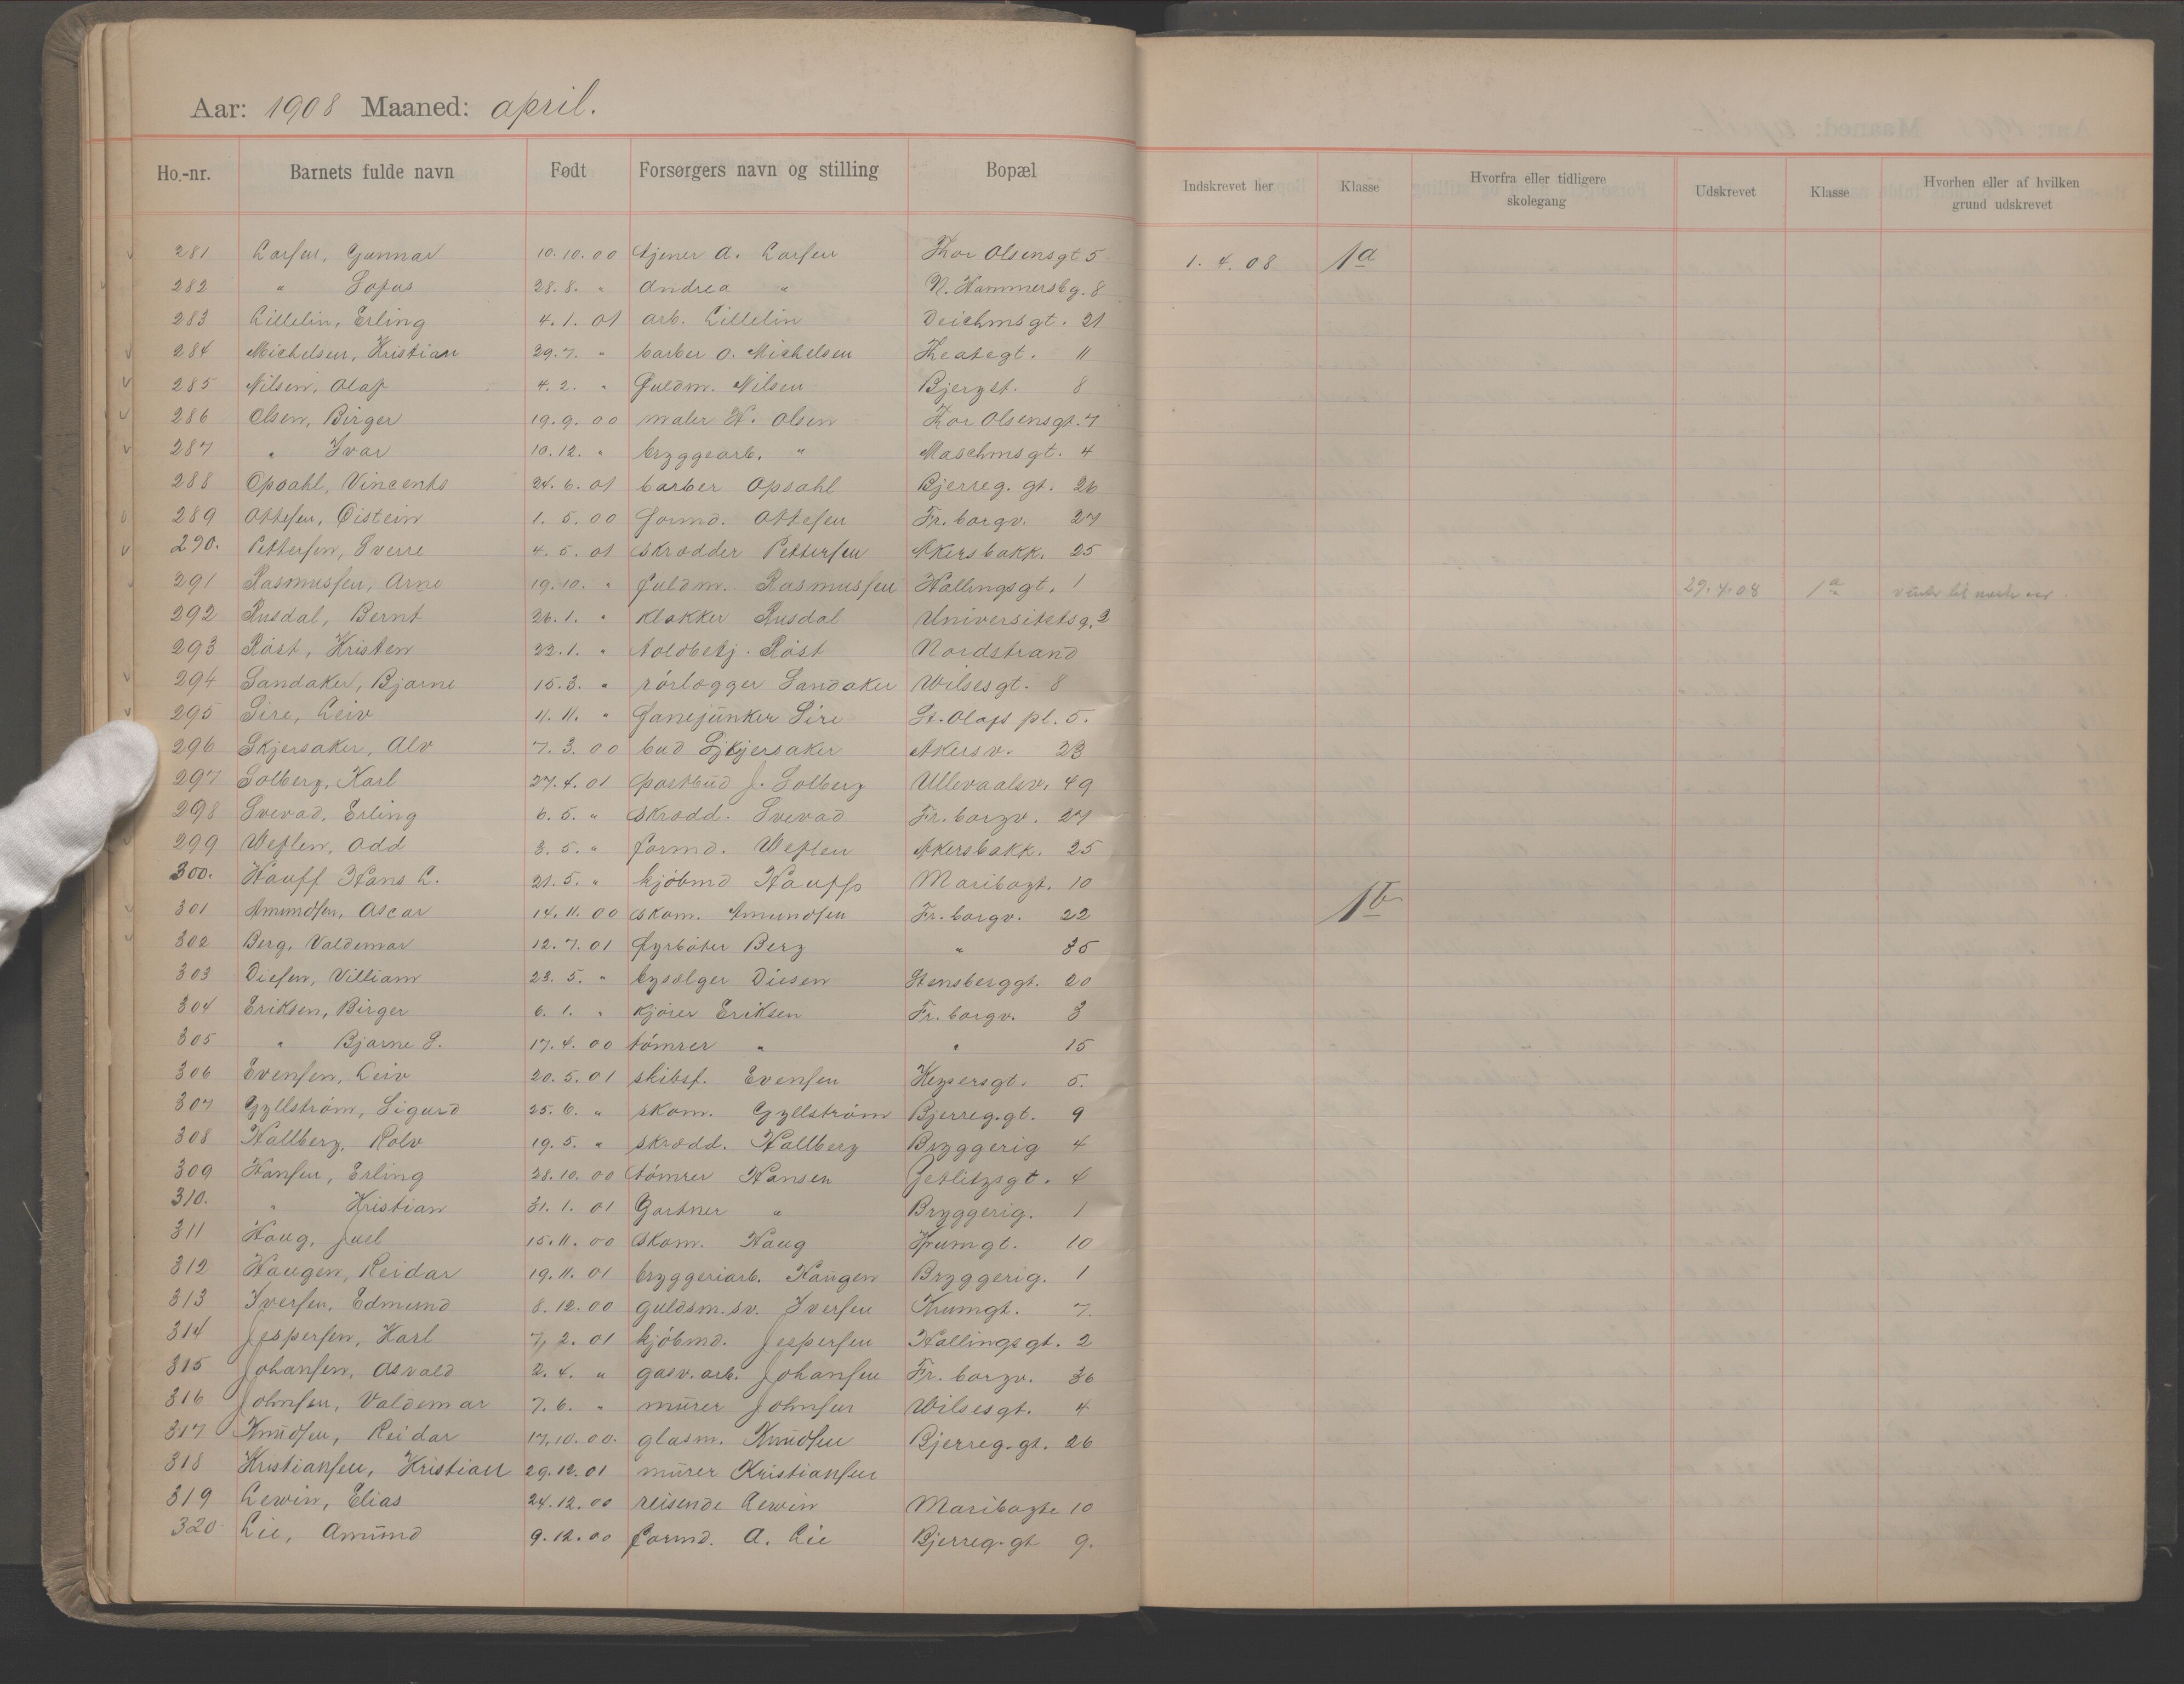 Aar: 1908 Maaned: april.
Ho.-nr. Barnets fulde navn Født Forsørgers navn og stilling Bopæl Indskrevet her Klasse Hvorfra eller tidligere skolegang Udskrevet Klasse Hvorhen eller af hvilken grund udskrevet
281 Larsen, Gunnar 10.10.00 tjener A. Larsen Thor Olsensgt 5 1.4.08 1a
282 " Sofus 28.8. " Andrea " N. Hammersbg. 8
283 Lillelin, Erling 4.1.01 arb. Lillelin Deichmsgt. 21
284 Michelsen, Kristian 29.7. " barber O. Michelsen Theategt. 11
285 Nilsen, Olaf 4.2. " fuldm. Nilsen Bjergst. 8
286 Olsen, Birger 19.9.00 maler N. Olsen Thor Olsensgt. 7
287 " Ivar 10.12. " bryggearb. " Maschmsgt. 4
288 Opsahl, Vincents 24.6.01 barber Opsahl Bjerreg. gt. 26
289 Ottesen, Øistein 1.5.00 formd. Ottesen Fr. borgv. 27
290. Pettersen, Sverre 4.5.01 skrædder Pettersen Akersbakk. 25
291 Rasmussen, Arne 19.10. " fuldm. Rasmussen Hallingsgt. 1 29.4.08 1a
292 Rusdal, Bernt 26.1. " klokker Rusdal Universitetsg. 2
293 Röst, Kristen 22.1. " toldbetj. Röst Nordstrand
294 Sandaker, Bjarne 15.3. " rörlægger Sandaker Wilsesgt. 8
295 Sire, Leiv 4.11. " fanejunker Sire St. Olafs pl. 5.
296 Skjersaker, Alv 7.3.00 bud Skjersaker Akersv. 23
297 Solberg, Karl 27.4.01 postbud J. Solberg Ullevaalsv. 49
298 Svevad, Erling 6.5. " skrædd. Svevad Fr. borgv. 27
299 Weflen, Odd 3.5. " formd. Weflen Akersbakk. 25
300. Hauff Hans L. 21.5. " kjöbmd Hauff Maribogt. 10
301 Amundsen, Oscar 14.11.00 skom. Amundsen Fr. borgv. 22 1b
302 Berg, Valdemar 12.7.01 fyrböter Berg " 35
303 Diesen, Villiam 23.5. " bysælger Diesen Stensberggt. 20
304 Eriksen, Birger 6.1. " kjörer Eriksen Fr. borgv. 3
305 " Bjarne S. 17.4.00 tömrer " " 15
306 Evensen, Leiv 20.5.01 skibsf. Evensen Keysersgt. 5.
307 Gyllström, Sigurd 25.6. " skom. Gyllström Bjerreg.gt. 9
308 Hallberg, Rolv 19.5. " skrædd. Hallberg Bryggerig 4
309 Hansen, Erling 28.10.00 tömrer Hansen Geblitzsgt. 4
310. " Kristian 31.1.01 Gartner " Bryggerig. 1
311 Haug, Juel 15.11.00 skom. Haug Krumgt. 10
312 Haugen, Reidar 19.11.01 bryggeriarb. Haugen Bryggerig. 1
313 Iversen, Edmund 8.12.00 guldsm.sv. Iversen Krumgt. 7.
314 Jespersen, Karl 7.2.01 kjöbmd. Jespersen Hallingsgt. 2
315 Johansen, Asvald 2.4. " gasv.arb. Johansen Fr. borgv. 36
316 Johnsen, Valdemar 7.6. " murer Johnsen Wilsesgt. 4
317 Knudsen, Reidar 17.10.00. glasm. Knudsen Bjerreg.gt. 26
318 Kristiansen, Kristian 29.12.01 murer Kristiansen
319 Lewin, Elias 24.12.00 reisende Lewin Maribogte 10
320 Lie, Amund 9.12.00 formd. A. Lie Bjerreg.gt 9.